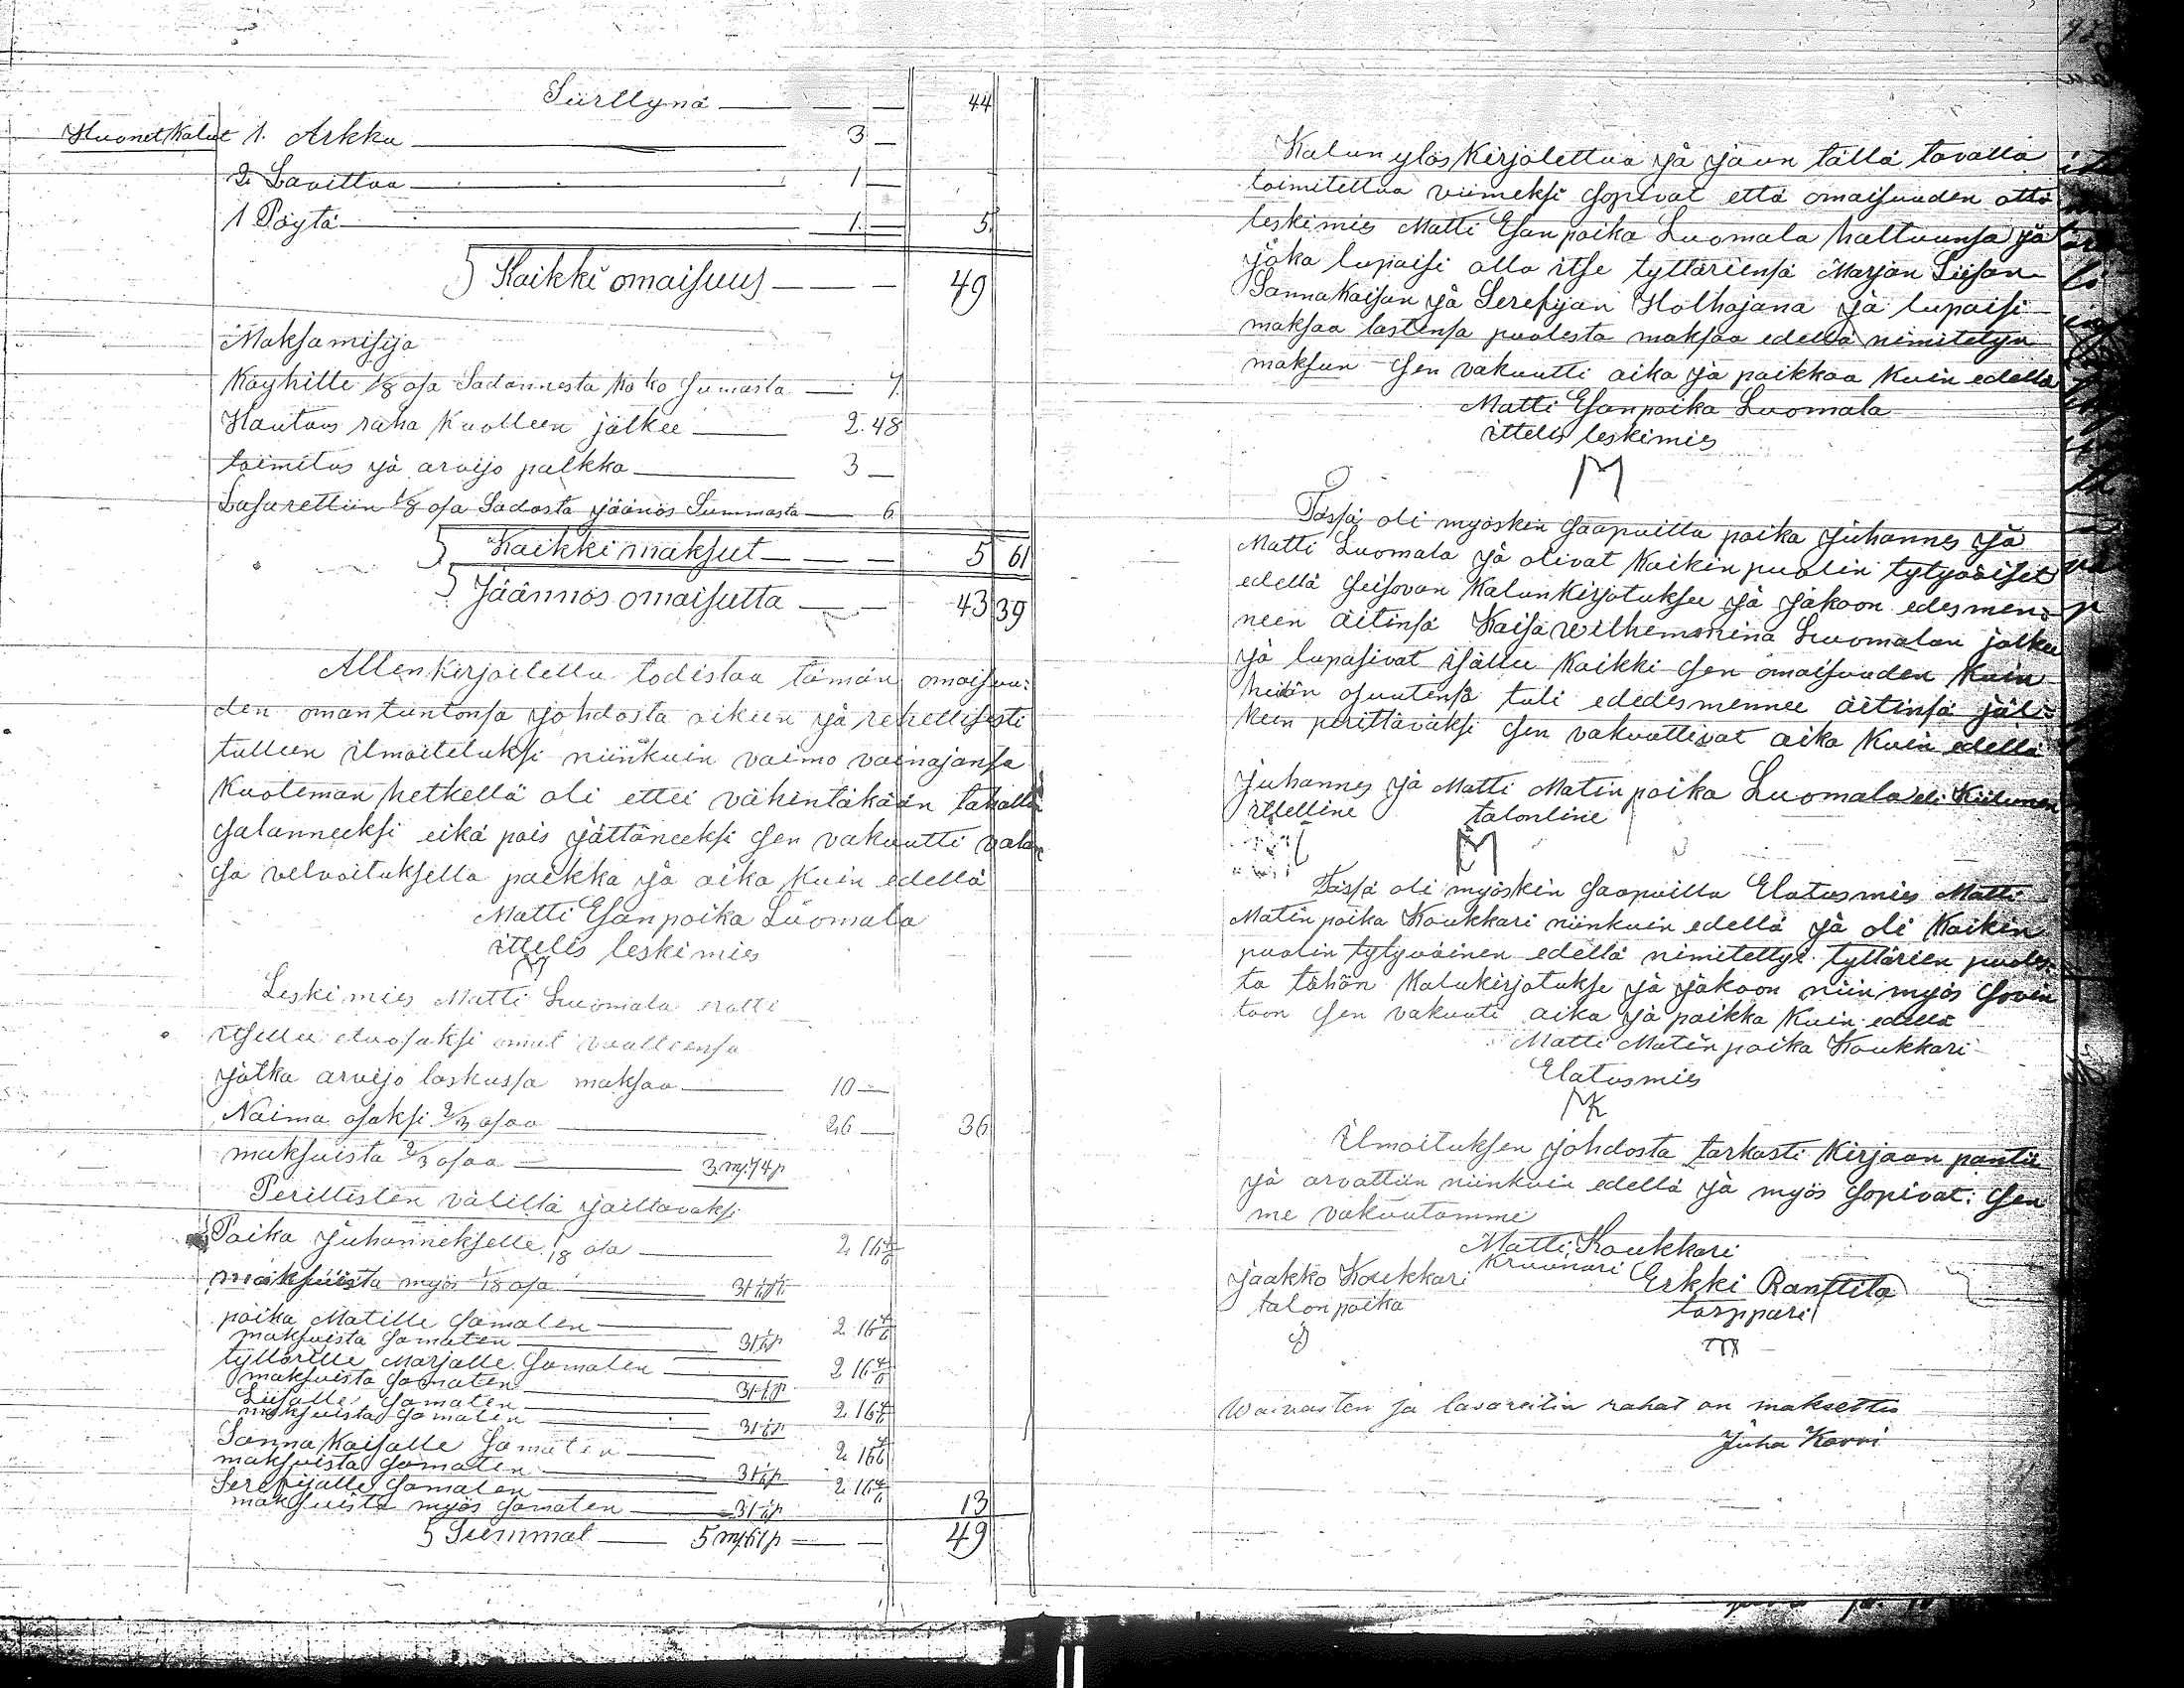 Siirttynä — 44
Huonet Kalut 1. Arkku — 3 —
2. Lavittaa — 1 —
1 Pöytä — 1. — 5.
Kaikki omaisuus — 49
Maksamisija
Käyhille 1/8 osa Sadannesta koko Sumasta — 7.
Hautaus raha Kuolleen jälkee — 2.48
toimitus ja arvijo palkka — 3 —
Lasarettiin 1/8 osa Sadosta jäänös Summasta — 6
Kaikki maksut — 5 61
Jäännös omaisutta — 43 39
Allenkirjoitettu todistaa tämän omaisuu:
den omantuntonsa johdosta oikeen ja rehellisesti
tulleen ilmoitetuksi niinkuin vaimo vainajansa
Kuoleman hetkellä oli ettei vähintäkään tahalla
salanneeksi eikä pois jättäneeksi sen vakuutti valan
sa velvoituksella paikka ja aika kuin edellä
Matti Esanpoika Luomala
ittelis leskimies
M
Leskimies Matti Luomala
itsellee etuosaksi omat vaatteensa
jotka arvijo laskussa maksaa — 10 —
Naima osaksi 2/3 osaa — 26 — 36
maksuista 2/3 osaa — 3 m: 74 p
Perillisten välillä jaettavaksi
Poika Juhannekselle 1/18 osa — 2 16 4/6
maksuista myös 1/18 osa — 31 1/6 p
poika Matille Samaten — 2 16 4/6
maksuista Samaten — 31 1/6 p
tyttärelle Marjalle Samaten — 2 16 4/6
maksuista Samaten — 31 1/6 p
Liisalle Samaten — 2 16 4/6
maksuista Samaten — 31 1/6 p
Sanna Kaisalle Samaten — 2 16 4/6
maksuista Samaten — 31 1/6 p
Serefijalle Samaten — 2 16 4/6
maksuista myös Samaten — 31 1/6 p 13
Summat — 5 m: 61 p — 49
Kalun ylös Kirjotettua ja jaun tällä tavalla
toimitettua viimeksi sopivat että omaisuuden otti
leskimies Matti Esanpoika Luomala haltuunsa ja
joka lupaisi olla itse tyttäriensä Marjan Liisan
Sanna Kaisan ja Serefijan Holhojana ja lupaisi
maksaa lastensa puolesta maksaa edellä nimitetyn
maksun sen vakuutti aika ja paikkaa Kuin edellä
Matti Esanpoika Luomala
ittelis leskimies
M
Tässä oli myösken saapuilla poika Juhannes ja
Matti Luomala ja olivat Kaikin puolin tytyväiset
edellä seisovan Kalunkirjotuksee ja jakoon edesmen:
neen äitinsä Kaisa Wilhemmina Luomalan jälkee
ja lupasivat isällee Kaikki sen omaisuuden Kuin
heidän osuutensa tuli ededesmennee äitinsä jäl:
keen perittäväksi sen vakuuttivat aika Kuin edellä
Juhannes ja Matti Matin poika Luomala eli Kiilunen
itselline talonline
M
Tässä oli myöskin saapuilla Elatusmies Matti
Matin poika Koukkari niinkuin edellä ja oli Kaikin
puolin tytyväinen edellä nimitettyi tyttärien puoles:
ta tähän Kalukirjotukse ja jakoon niin myös sovin
toon sen vakuuti aika ja paikka Kuin edellä
Matti Matin poika Koukkari
Elatusmies
MK
Ilmoituksen johdosta tarkasti Kirjaan pantii
ja arvattiin niinkuin edellä ja myös sopivat: sen
me vakuutamme
Matti Koukkari
Kruunari
Jaakko Koukkari Erkki Ranttila
talon poika torppari
Waivasten ja lasaretin rahat on maksettu
Juha Karvi